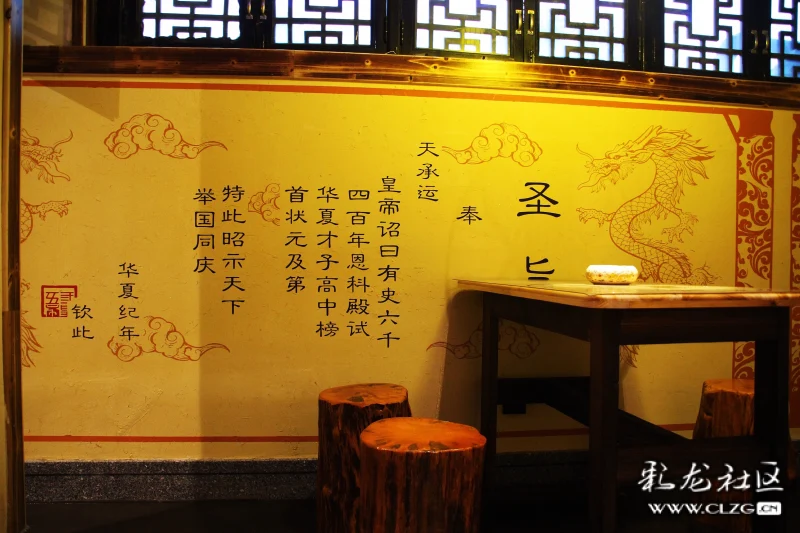 圣旨
奉
天承运
皇帝诏曰有史六千
四百年恩科殿试
华夏才子高中榜
首状元及第
特此昭示天下
举国同庆
华夏纪年
钦此
彩龙社区
WWW.CLZG.CN